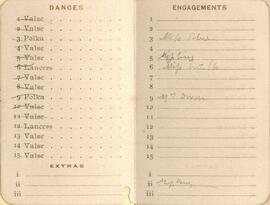 DANCES
1 Valse
2 Valse
3 Polka
4 Valse
5 Valse
6 Lancers
7 Valse
8 Valse
9 Polka
10 Valse
11 Valse
12 Lancers
13 Valse
14 Valse
15 Valse
EXTRAS
i
ii
iii
ENGAGEMENTS
1
2
3 Miss
4
5 Miss
6 Miss
7
8
9
10
11
12
13
14
15
i
ii Miss
iii